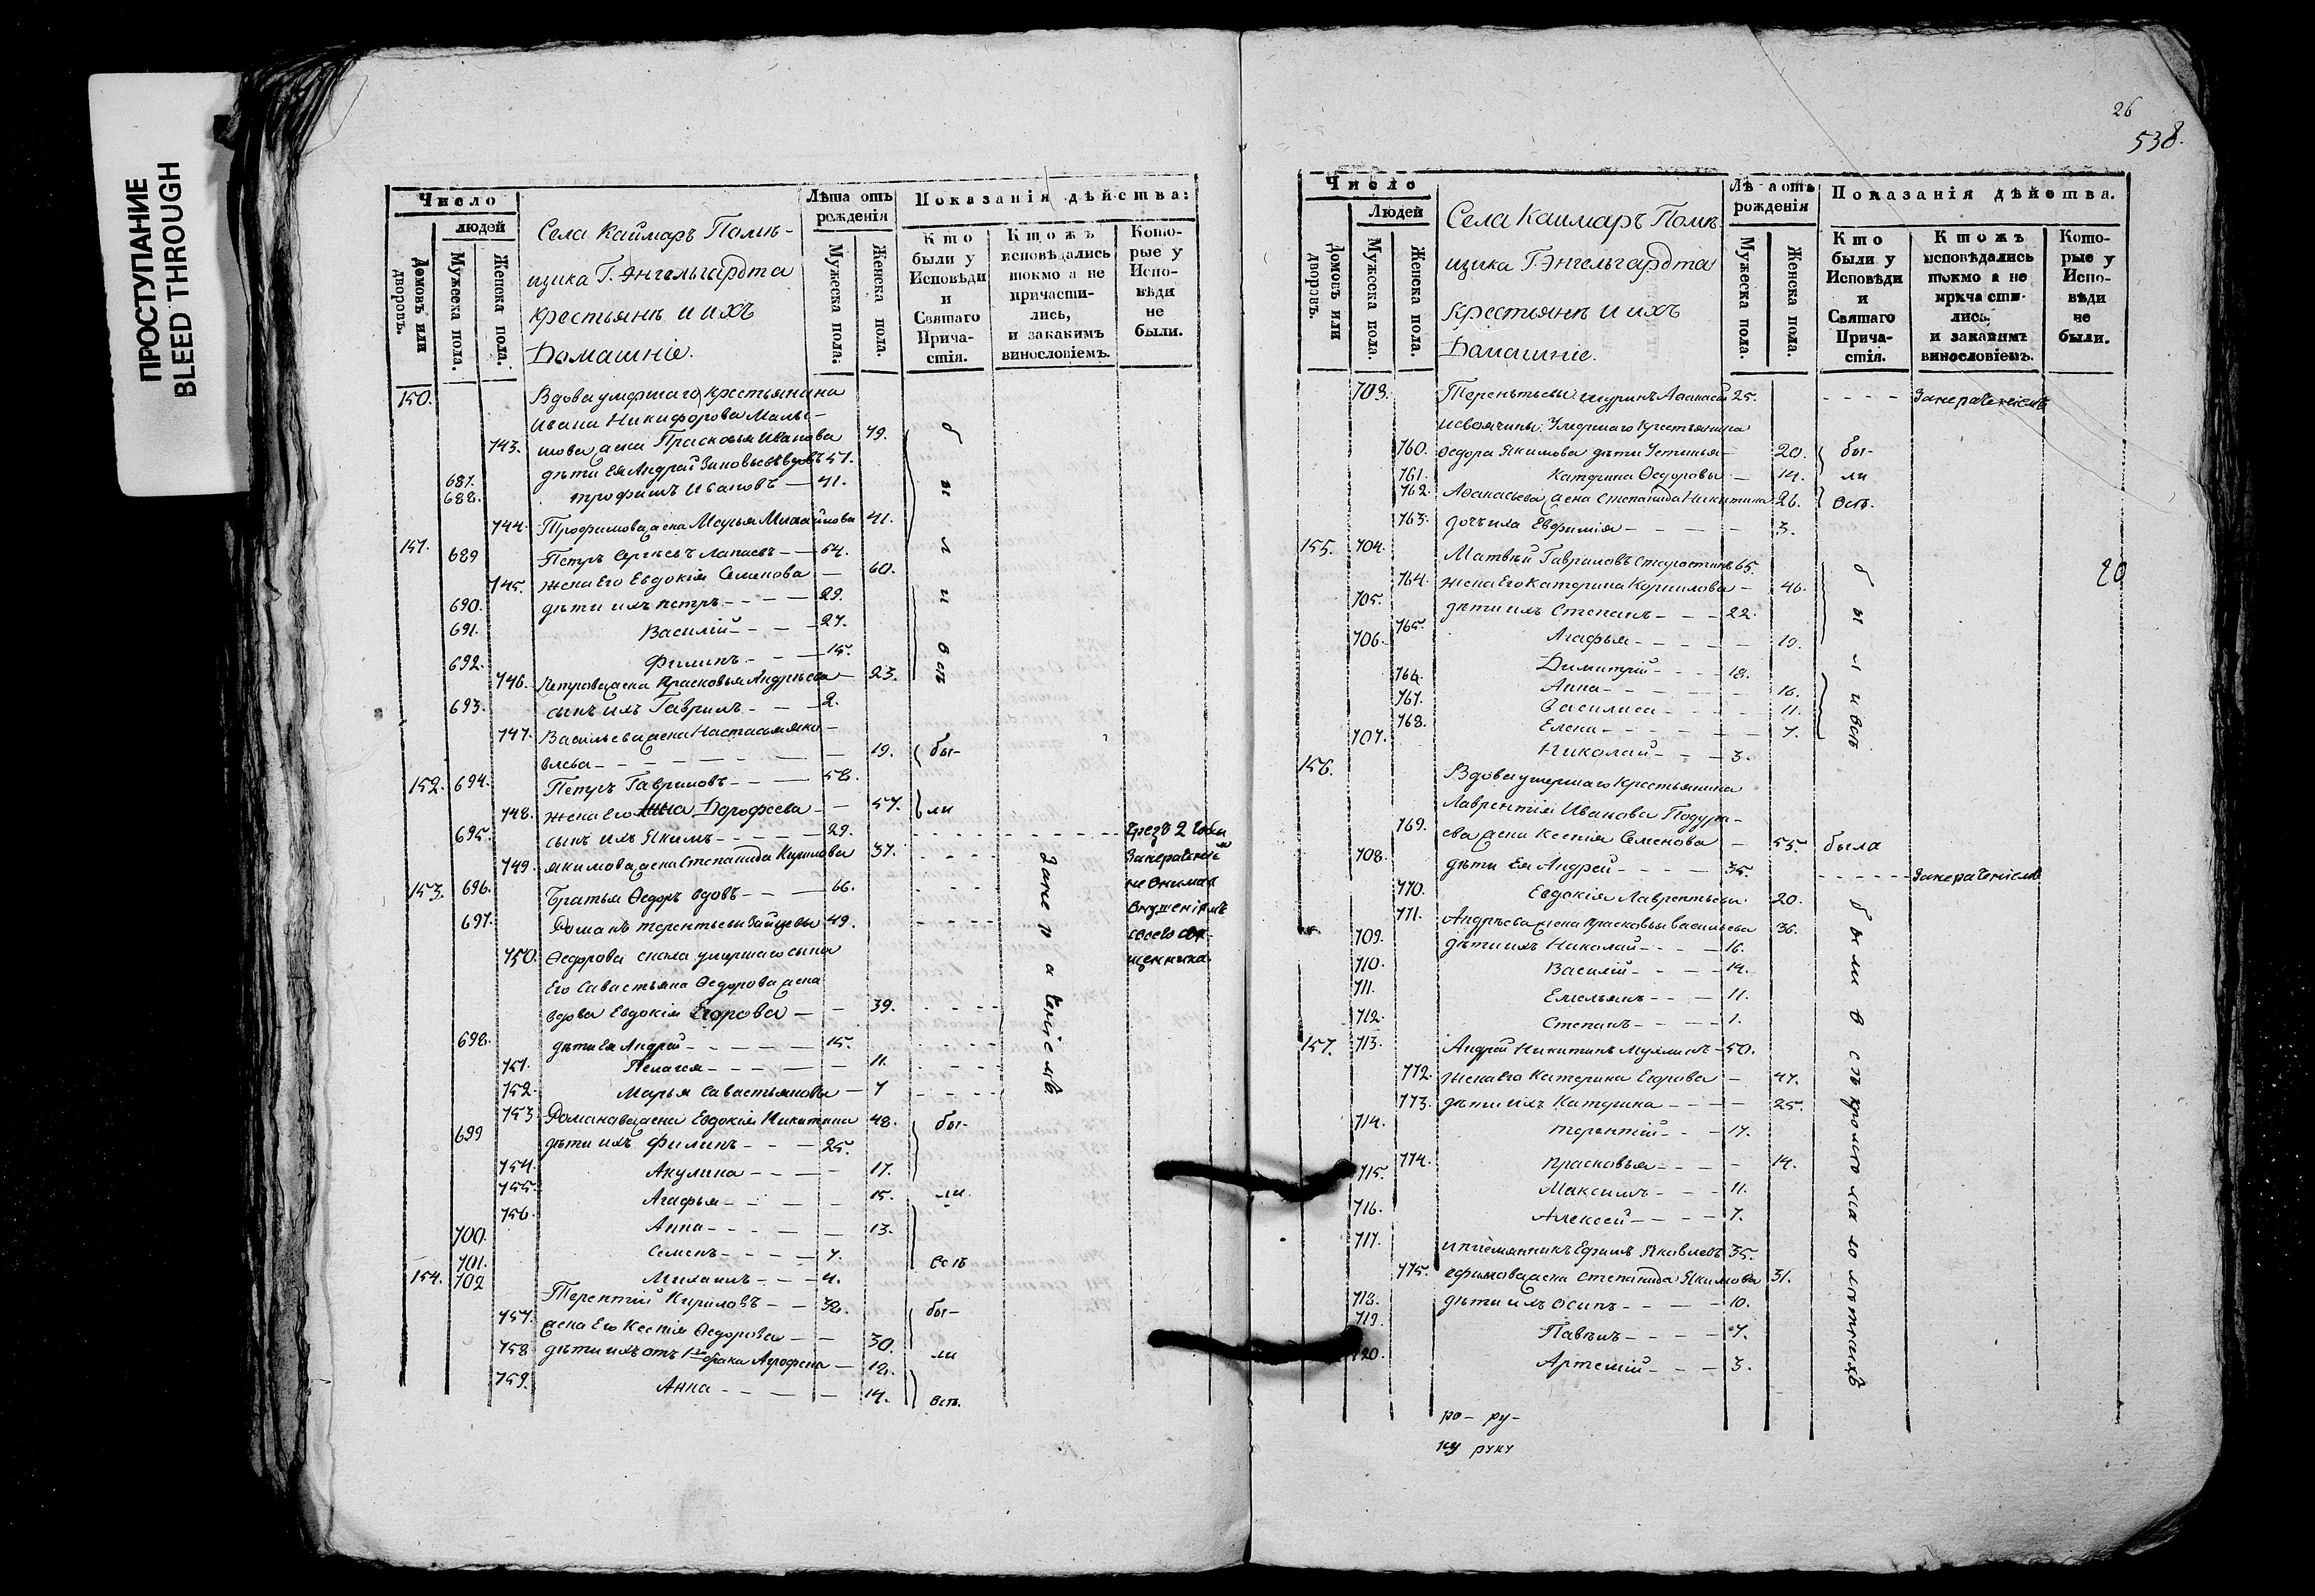 ПРОСТУПАНИЕ
BLEED THROUGH
Число
людей
Домовъ или дворовъ.
Мужеска пола.
Женска пола.
Села Каймаръ Помѣ-
щика Г. Энгельгардта
крестьянѣ и ихъ
Домашніе.
Лѣта отъ рожденія
Мужеска пола.
Женска пола.
Показанія дѣйства:
Кто были у Исповѣди и Святаго Прича-стія.
Ктожъ исповѣдались токмо а не причасти-лись, и закакимъ винословіемъ.
Кото-рые у Испо-вѣди не были.
150. Вдова умершаго крестьянина
Ивана Никифорова Малы-
743. шова жена Прасковья Иванова 79.
687. дѣти Ея Андрей Зиновьевъ вдовъ 51.
688. Трофимъ Ивановъ — 41.
744. Трофимова жена Марья Михайлова 41.
были всѣ
151. 689 Петръ Сергѣевъ Лапаевъ — 64.
745. жена Его Евдокія Семенова — 60.
690. дѣти ихъ петръ — 29.
691. Василій — 27.
692. Филипъ — 15.
746. Петрова жена Прасковья Андрѣева — 23.
693. сынъ ихъ Гаврилъ — 2.
747. Васильева жена Настасья яко-
влева — 19. бы-
152. 694. Петръ Гавриловъ — 58.
748. жена Его Дорофеева — 57. ли
695. сынъ ихъ Якимъ — 29. Чрезъ 2 года
749. якимова жена Степанида Кирилова 37. Занераченіемъ
153. 696. Братья Ѳедоръ вдовъ — 66. не внимая
внушеніямъ
697. Романъ терентьевы Зайцевы 49. своего свя-
750. Ѳедорова сноха умершаго сына щенника
Его Савастьяна Ѳедорова жена
вдова Евдокія Егорова — 39.
Занераченіемъ
698. дѣти Ея Андрей — 15.
751. Пелагея — 11.
752. Марья Савастьяновы — 7
753. Романова жена Евдокія Никитина 48. бы-
699 дѣти ихъ Филипъ — 25.
754. Акулина — 17.
755. Агафья — 15. ли
756. Анна — 13.
700. Семенъ — 7. всѣ
701. Михаилъ — 4.
154. 702 Терентій Кириловъ — 32. бы-
757. жена Его Ксенія Ѳедорова — 30.
758 дѣти ихъ отъ 1го брака Агрофена — ли
759. Анна — 14. всѣ.
26
538.
Число
Людей
Домовъ или дворовъ.
Мужеска пола.
Женска пола.
Села Каймаръ Помѣ
щика Г. Энгельгардта
крестьянѣ и ихъ
Домашніе.
Лѣта отъ рожденія
Мужеска пола.
Женска пола.
Показанія дѣйства.
Кто были у Исповѣди и Святаго Прича-стія.
Ктожъ исповѣдались токмо а не причасти-лись. и закакимъ винословіемъ.
Кото-рые у Испо-вѣди не были.
703. Терентьевы шуринъ Аѳанасій 25. Занераченіемъ
и своячины: Умершаго крестьянина
760. Ѳедора Якимова дѣти Устинья — 20. бы-
761. Катерина Ѳедоровы — 14. ли
762. Аѳанасьева жена Степанида Никитина 26. всѣ.
763. дочь ихъ Евфимія — 3.
155. 704. Матвѣй Гавриловъ Старостинъ 65. 20
764. жена Его Катерина Корнилова — 46.
705. дѣти ихъ Степанъ — 22.
765. Агафья — 19.
706. Димитрій — 18.
766. Анна — 16.
767. Василиса — 11.
768. Елена — 7.
707. Николай — 3.
были всѣ
156. Вдова умершаго крестьянина
Лаврентія Иванова Подур-
769. ева жена Ксенія Семенова — 55. была
708. дѣти Ея Андрей — 35. Занераченіемъ
770. Евдокія Лаврентьевы 20.
771. Андрѣева жена прасковья васильева 36.
709. дѣти ихъ Николай — 16.
710. Василій — 14.
711. Емельянъ — 11.
712. Степанъ — 1.
157. 713. Андрей Никитинъ — 50.
772. жена Его Катерина Егорова — 47.
773. дѣти ихъ Катерина — 25.
714. терентій — 17.
774. прасковья — 14.
715. Максимъ — 11.
716. Алексей — 7.
717. и племянникъ Ефимъ Яковлевъ 35.
775. ефимова жена Степанида Якимова 31.
718. дѣти ихъ осипъ — 10.
719. Павелъ — 7.
720. Артемій — 3.
были всѣ кромѣ малолѣтныхъ
ро- ру-
ку руку